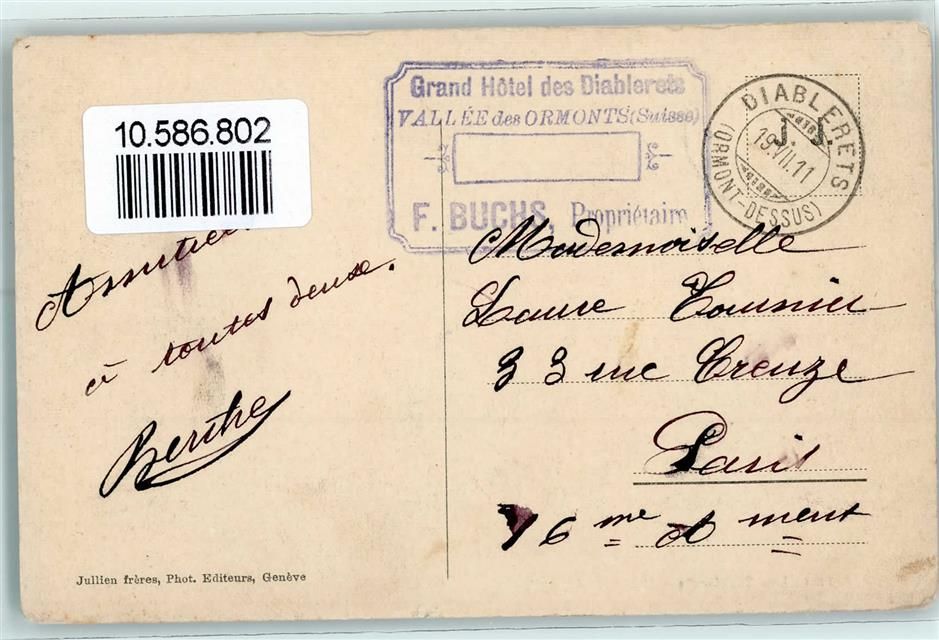 10.586.802
Grand Hôtel des Diablerets
VALLÉE des ORMONTS (Suisse)
F. BUCHS, Propriétaire
DIABLERETS
19.VII.11
(ORMONT-DESSUS)
J. J.
à toutes deux.
Berthe
Mademoiselle
Laure Tournier
33 rue Greuze
Paris
16 me A ment
Jullien frères, Phot. Editeurs, Genève